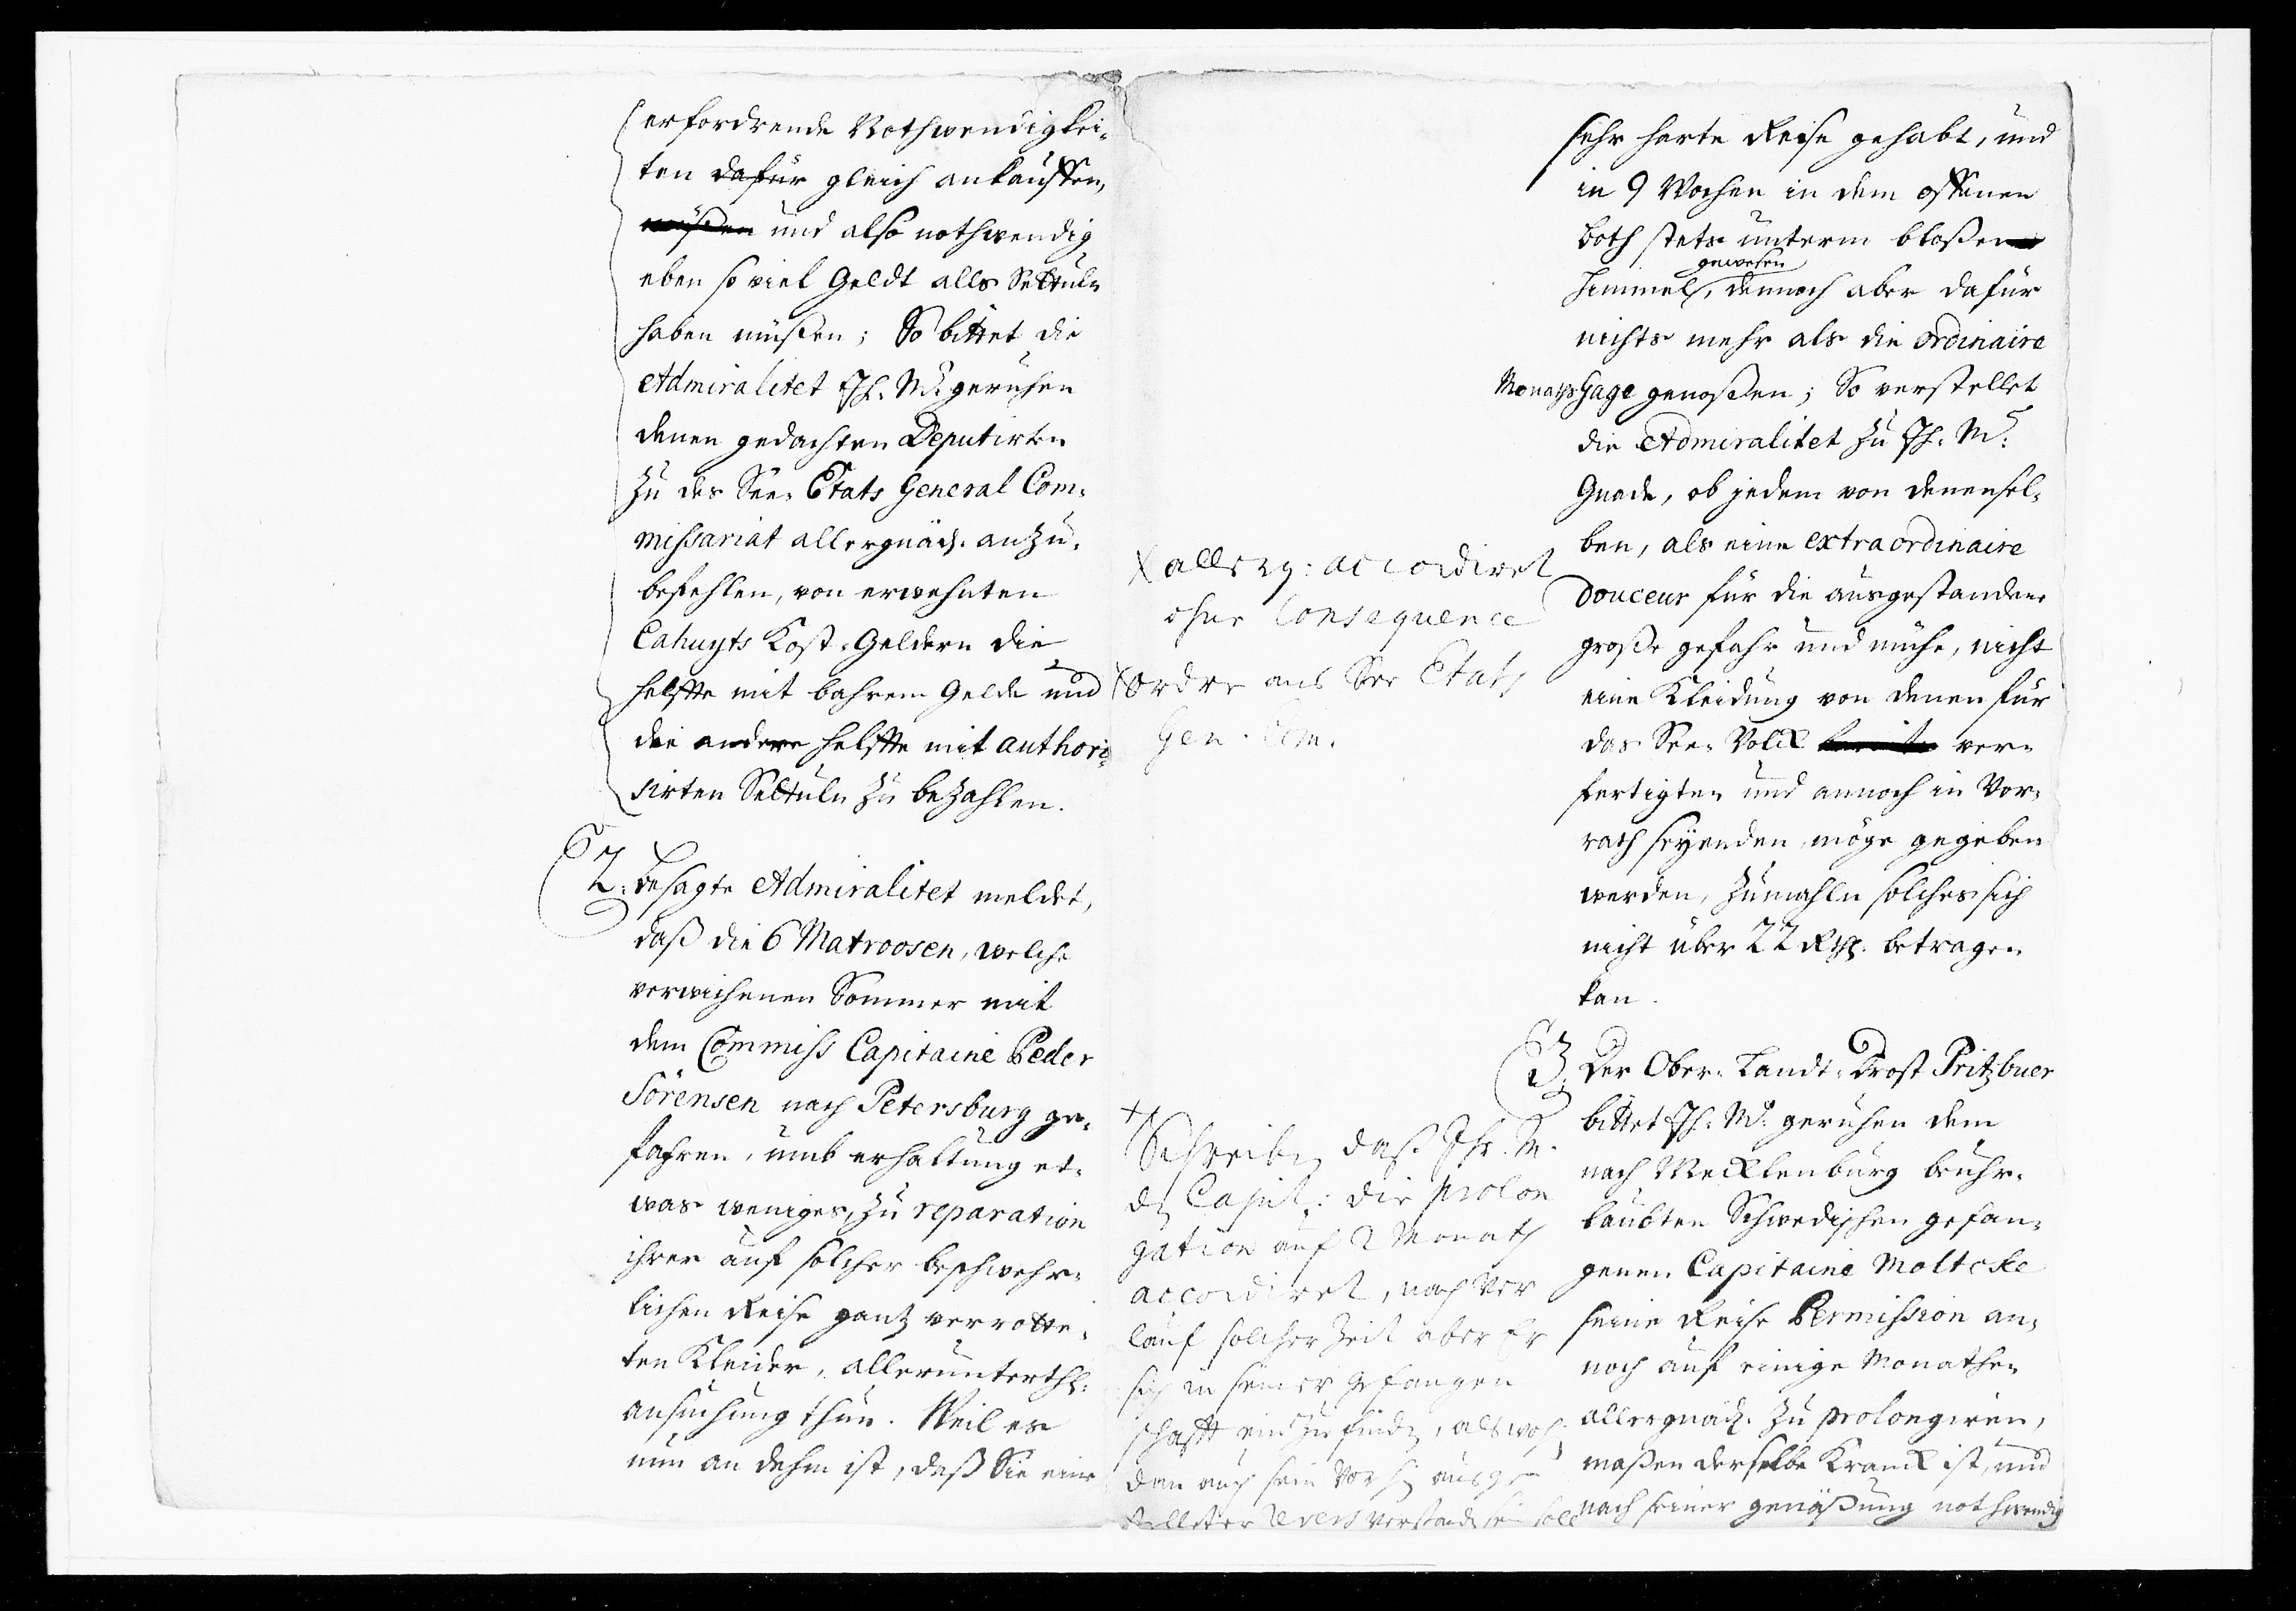 erfordrende Nothwendigkei-
ten dafür gleich ankauffen,
müßen und also nothwendig
eben so viel Geldt alls Settuln
haben müßen; So bittet die
Admiralitet Jh. Mt. geruhen
denen gedachten Deputirten
zu des See-Etats General Com-
missariat allergnäd. anzu-
befehlen, von erwehnten
Cahuyts Kost-Geldern die
helffte mit bahrem Gelde und
die andere helffte mit authori-
sirten Settuln zu bezahlen.
2. besagte Admiralitet meldet,
daß die 6 Matroosen, welche
verwichenen Sommer mit
dem Commiss Capitaine Peder
Sörensen nach Petersburg ge-
fahren, umb erhaltung et-
was weniges, zu reparation
ihrer auf solcher beschwehr-
lichen Reise gantz verrotte-
ten Kleider, allerunterth:
ansuchung thun. Weil es
nun an dehm ist, daß Sie eine
X allerg: accordiret
ohne Consequence
X ordre ans See Etats
Gen. Com.
+
Schreiben daß Ihr. M.
den Capit: die prolon
gation auf 2 Monath
accordiret, nach Ver
lauf solcher Zeit aber Er
sich in seiner gefangen
schafft einzufinden, als woh
dan auch sein vorhin ausge
stelleter Revers verstanden sein soll
sehr harte Reise gehabt, und
in 9 Wochen in dem offenen
both stets unterm bloßen
gewesen
Himmel, dennoch aber dafür
nichts mehr als die ordinaire
Monaths Gage genoßen; So verstellet
die Admiralitet zu Jh. Mt.
Gnade, ob jedem von denensel-
ben, als eine extraordinaire
Douceur für die ausgestandene
große gefahr und mühe, nicht
eine Kleidung von denen für
das See-Volck bereits ver-
fertigten und annoch in Vor-
rath seyenden möge gegeben
werden, zumahln solches sich
nicht über 22 Rthl. betragen
kan.
3. Der Ober-Landt-Drost Pritzbuer
bittet Jh. Mt. geruhen dem
nach Mecklenburg beuhr-
laubten Schwedischen gefan-
genen Capitaine Moltcke
seine Reise Permission an-
noch auf einige Monathen
allergnäd. zu prolongiren,
maßen derselbe Kranck ist, und
nach seiner genäßung nothwendig